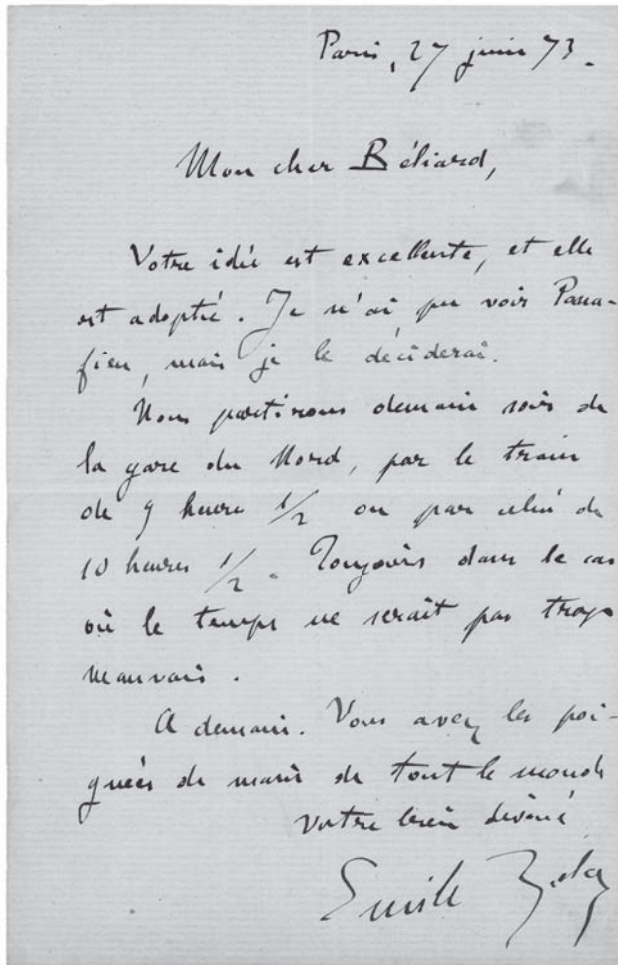 Paris, 27 juin 73.
Mon cher Béliard,
Votre idée est excellente, et elle
est adoptée. Je n'ai pu voir
mais je le déciderai.
Nous partirons demain soir de
la gare du Nord, par le train
de 9 heure 1/2 ou par celui de
10 heures 1/2. Toujours dans le cas
où le temps ne serait pas trop
mauvais.
A demain. Vous avez les poi-
gnées de main de tout le monde
votre bien dévoué
Emile Zola